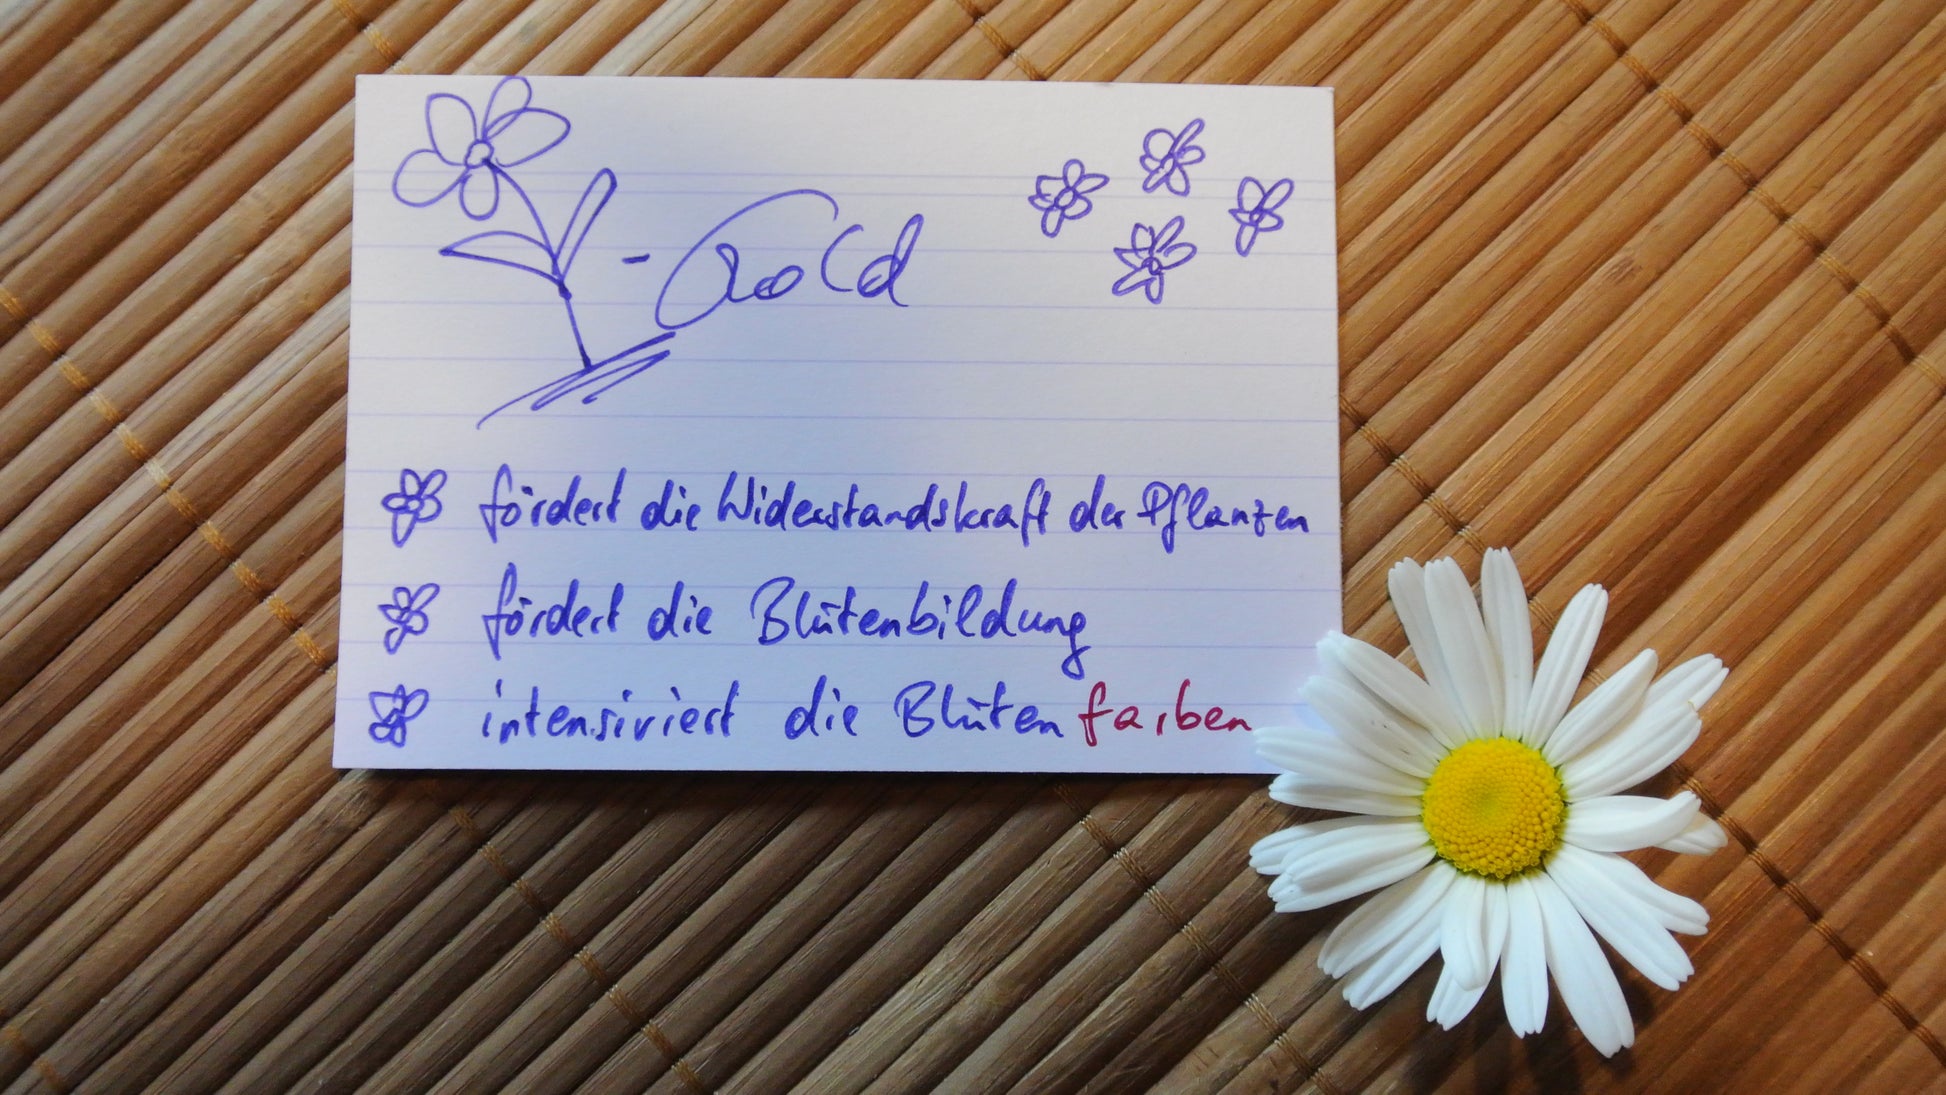 - Gold
fördert die Widerstandskraft der Pflanzen
fördert die Blütenbildung
intensiviert die Blütenfarben